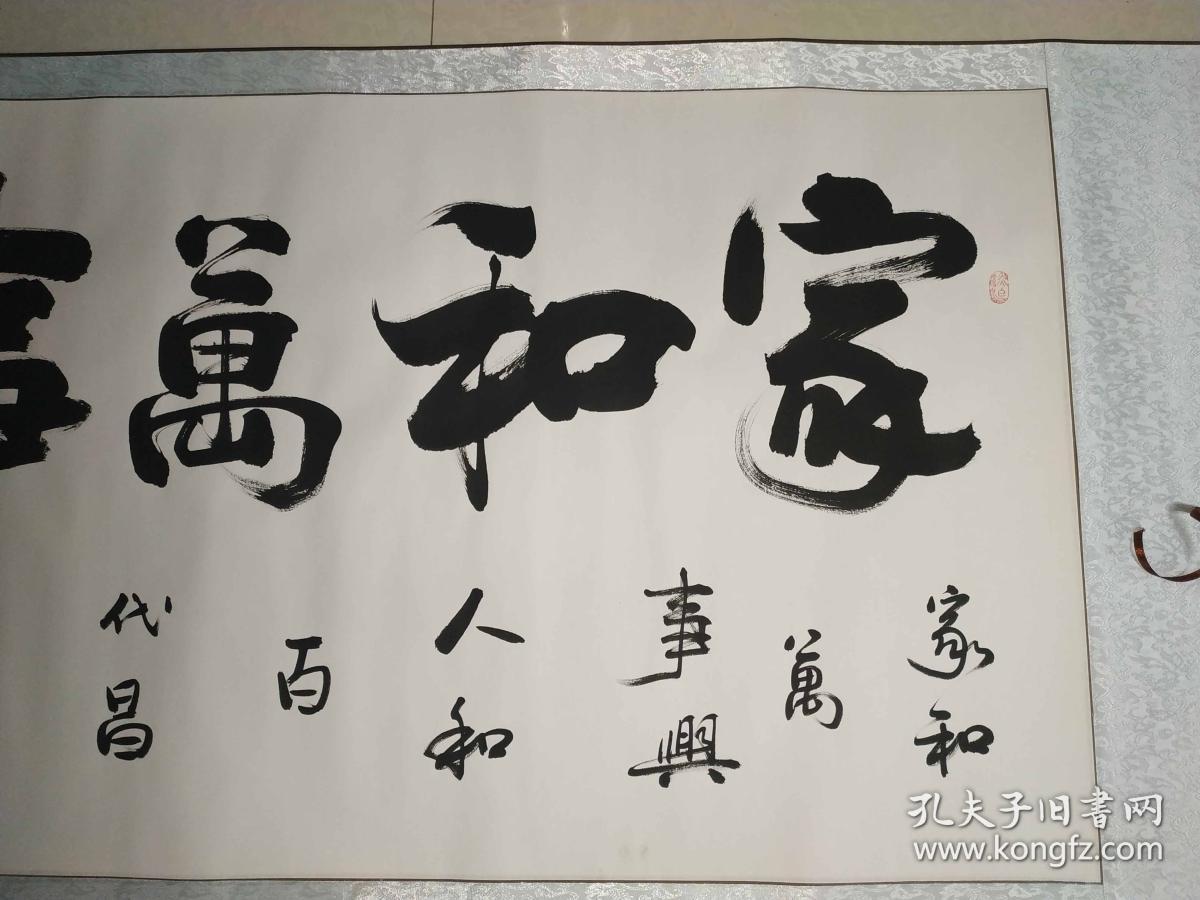 家和萬事
家和
萬
事興
人和
百
代昌
孔夫子旧书网
www.kongfz.com